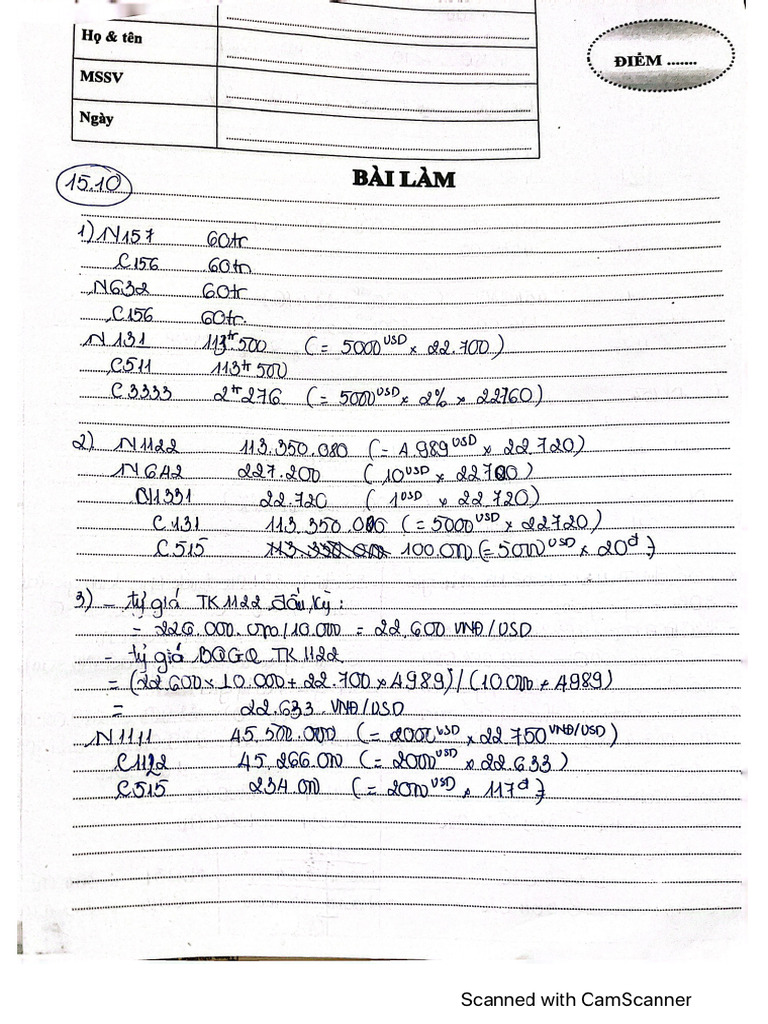 Họ & tên
MSSV
Ngày
ĐIỂM .......
BÀI LÀM
15.10
1) N157 60tr
C156 60tr
N632 60tr
C156 60tr.
N131 113tr500 (= 5000USD × 22.700)
C511 113tr500
C3333 2tr276 (= 5000USD × 2% × 22760)
2) N1122 113.350.080 (= 4.989USD × 22.720)
N642 227.200 (10USD × 22700)
N1331 22.720 (1USD × 22.720)
C131 (= 5000USD × 22720)
C515 100.000 (= 5000USD × 20đ)
3) - tỷ giá TK1122 đầu kỳ:
= 226.000.000/10.000 = 22.600 VNĐ/USD
- tỷ giá BQGQ TK1122
= (22.600×10.000+22.700×4989)/(10.000+4989)
= 22.633 VNĐ/USD
N1111 45.500.000 (= 2000USD × 22750VNĐ/USD)
C1122 45.266.000 (= 2000USD × 22.633)
C515 234.000 (= 2000USD × 117đ)
Scanned with CamScanner